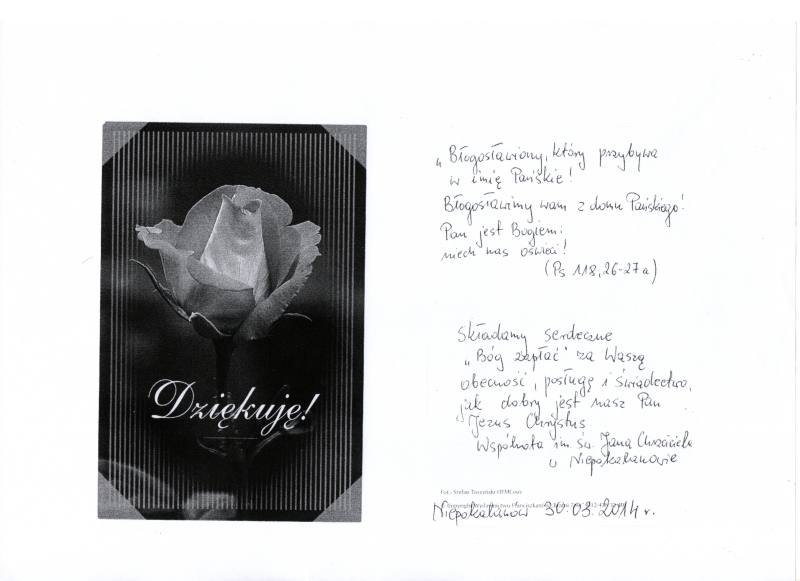 Dziękuję!
„Błogosławiony, który przybywa
w imię Pańskie!
Błogosławimy wam z domu Pańskiego!
Pan jest Bogiem:
niech nas oświeci!
(Ps 118, 26-27a)
Składamy serdeczne
„Bóg zapłać" za Waszą
obecność, posługę i świadectwo,
jak dobry jest nasz Pan
Jezus Chrystus
Wspólnota im św. Jana Chrzciciela
w Niepokalanowie
Fot.: Stefan OFMConv
Copyright Wydawnictwo
Niepokalanów 30.03.2014 r.